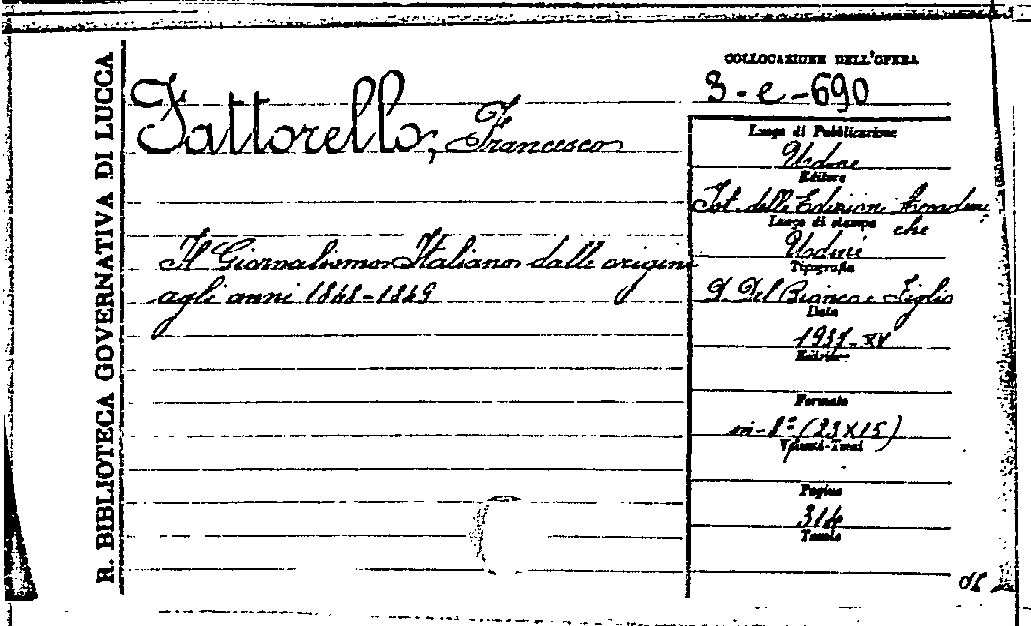 R. BIBLIOTECA GOVERNATIVA DI LUCCA
COLLOCAZIONE DELL'OPERA
3-e-690
Fattorello, Francesco
Il Giornalismo Italiano dalle origini
agli anni 1848-1849
Luogo di Pubblicazione
Udine
Editore
Ist. delle Edizioni Accademi
che
Luogo di stampa
Udine
Tipografia
G. Del Bianco e Figlio
Data
1937-XV
Edizione
Formato
in-8° (23X15)
Volumi-Tomi
Pagine
314
Tavole